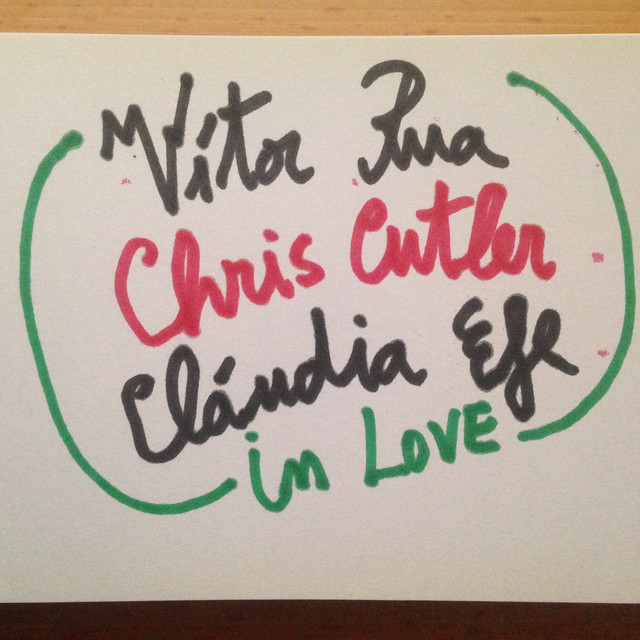 Vítor Rua
Chris Cutler
Cláudia Efe
in LOVE